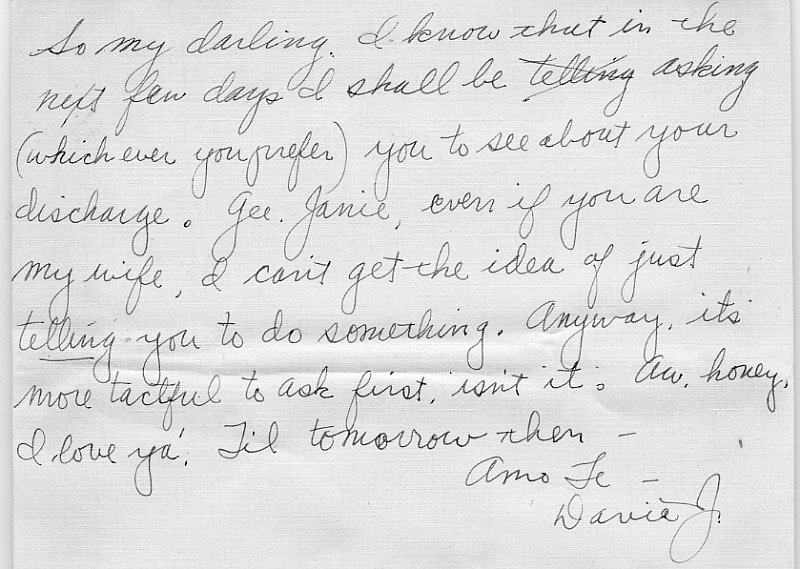 So my darling. I know that in the
next few days I shall be telling asking
(which ever you prefer) you to see about your
discharge. Gee. Janie, even if you are
my wife, I can't get the idea of just
telling you to do something. Anyway, it's
more tactful to ask first, isn't it. Aw, honey,
I love ya'. Til tomorrow then –
Amo Te –
David J.